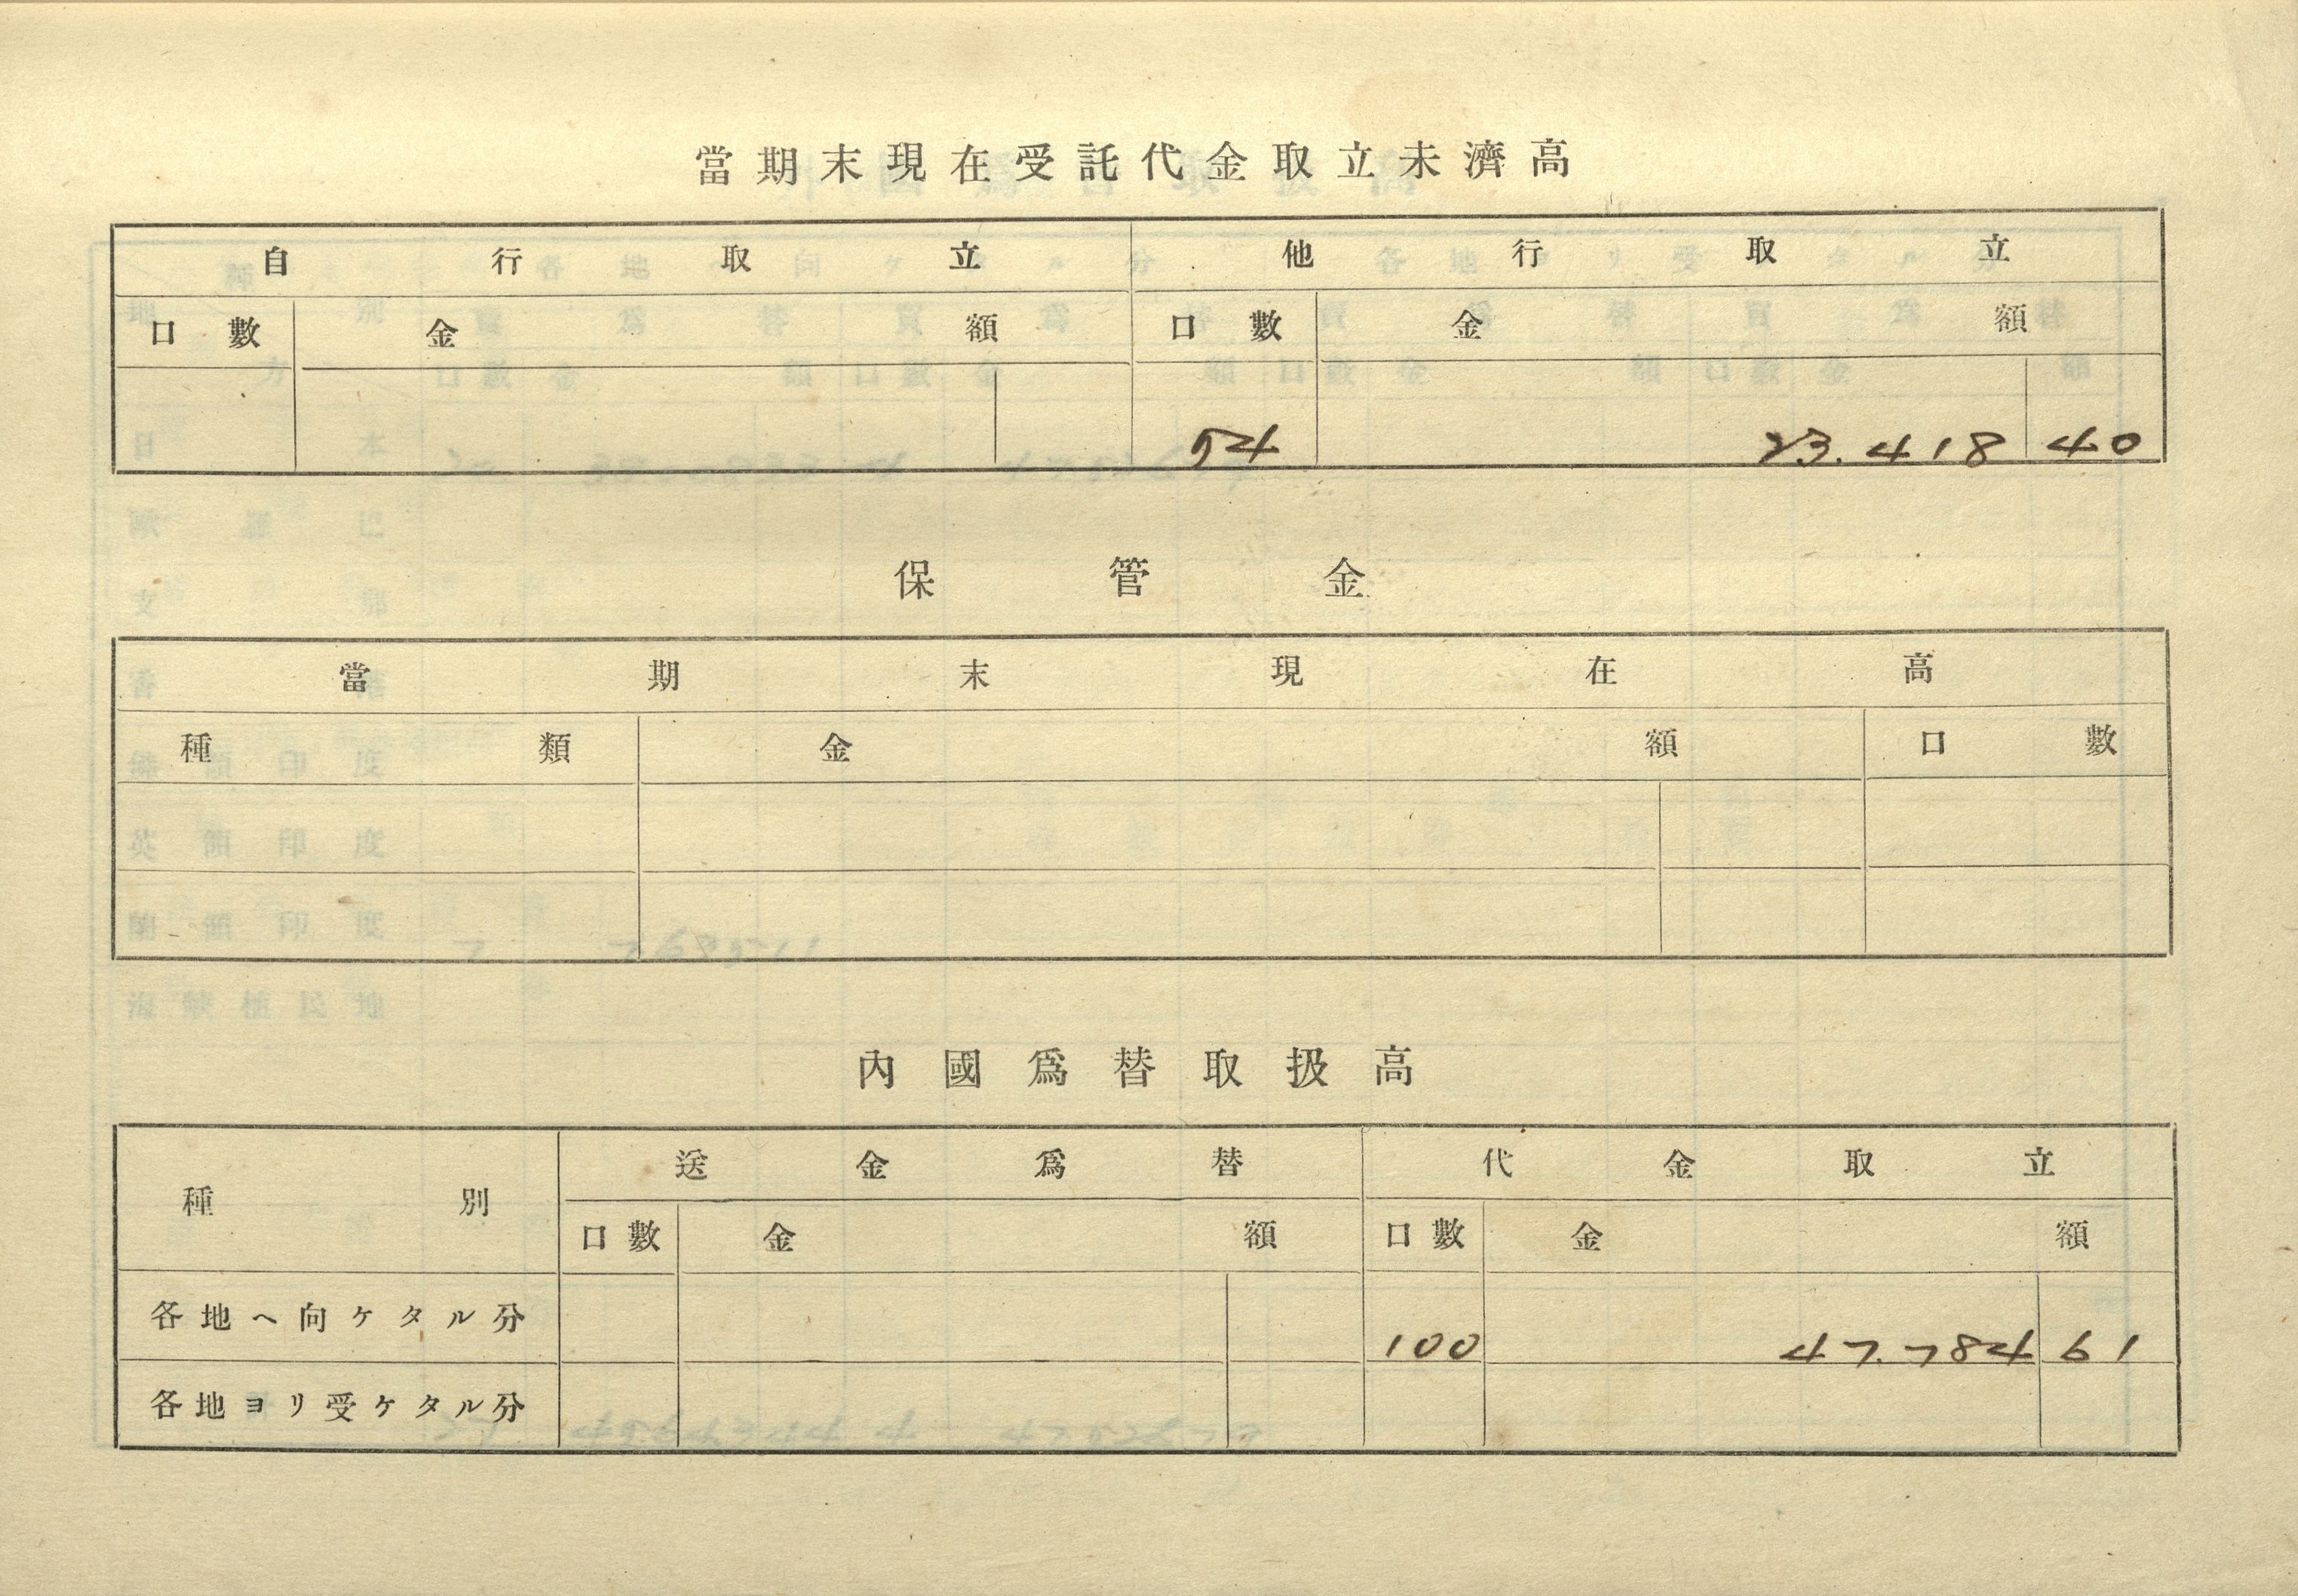 當期末現在受託代金取立未濟高
自行取立 他行取立
口數 金額 口數 金額
54 23.418 40
保管金
當期末現在高
種類 金額 口數
內國爲替取扱高
種別 送金爲替 代金取立
口數 金額 口數 金額
各地ヘ向ケタル分 100 47.784 61
各地ヨリ受ケタル分